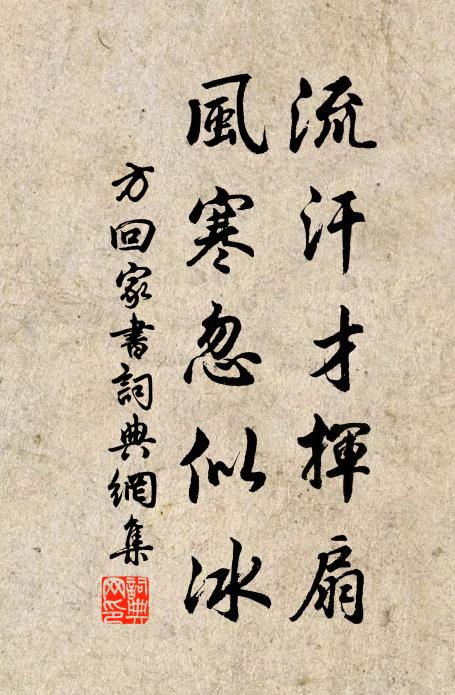 流汗才揮扇
風寒忽似冰
方回家書詞典網集
詞典
网印